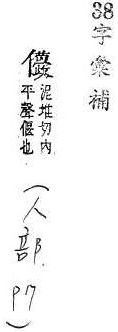 38字彙補
泥堆切內
平聲偃也
(人部 P7)